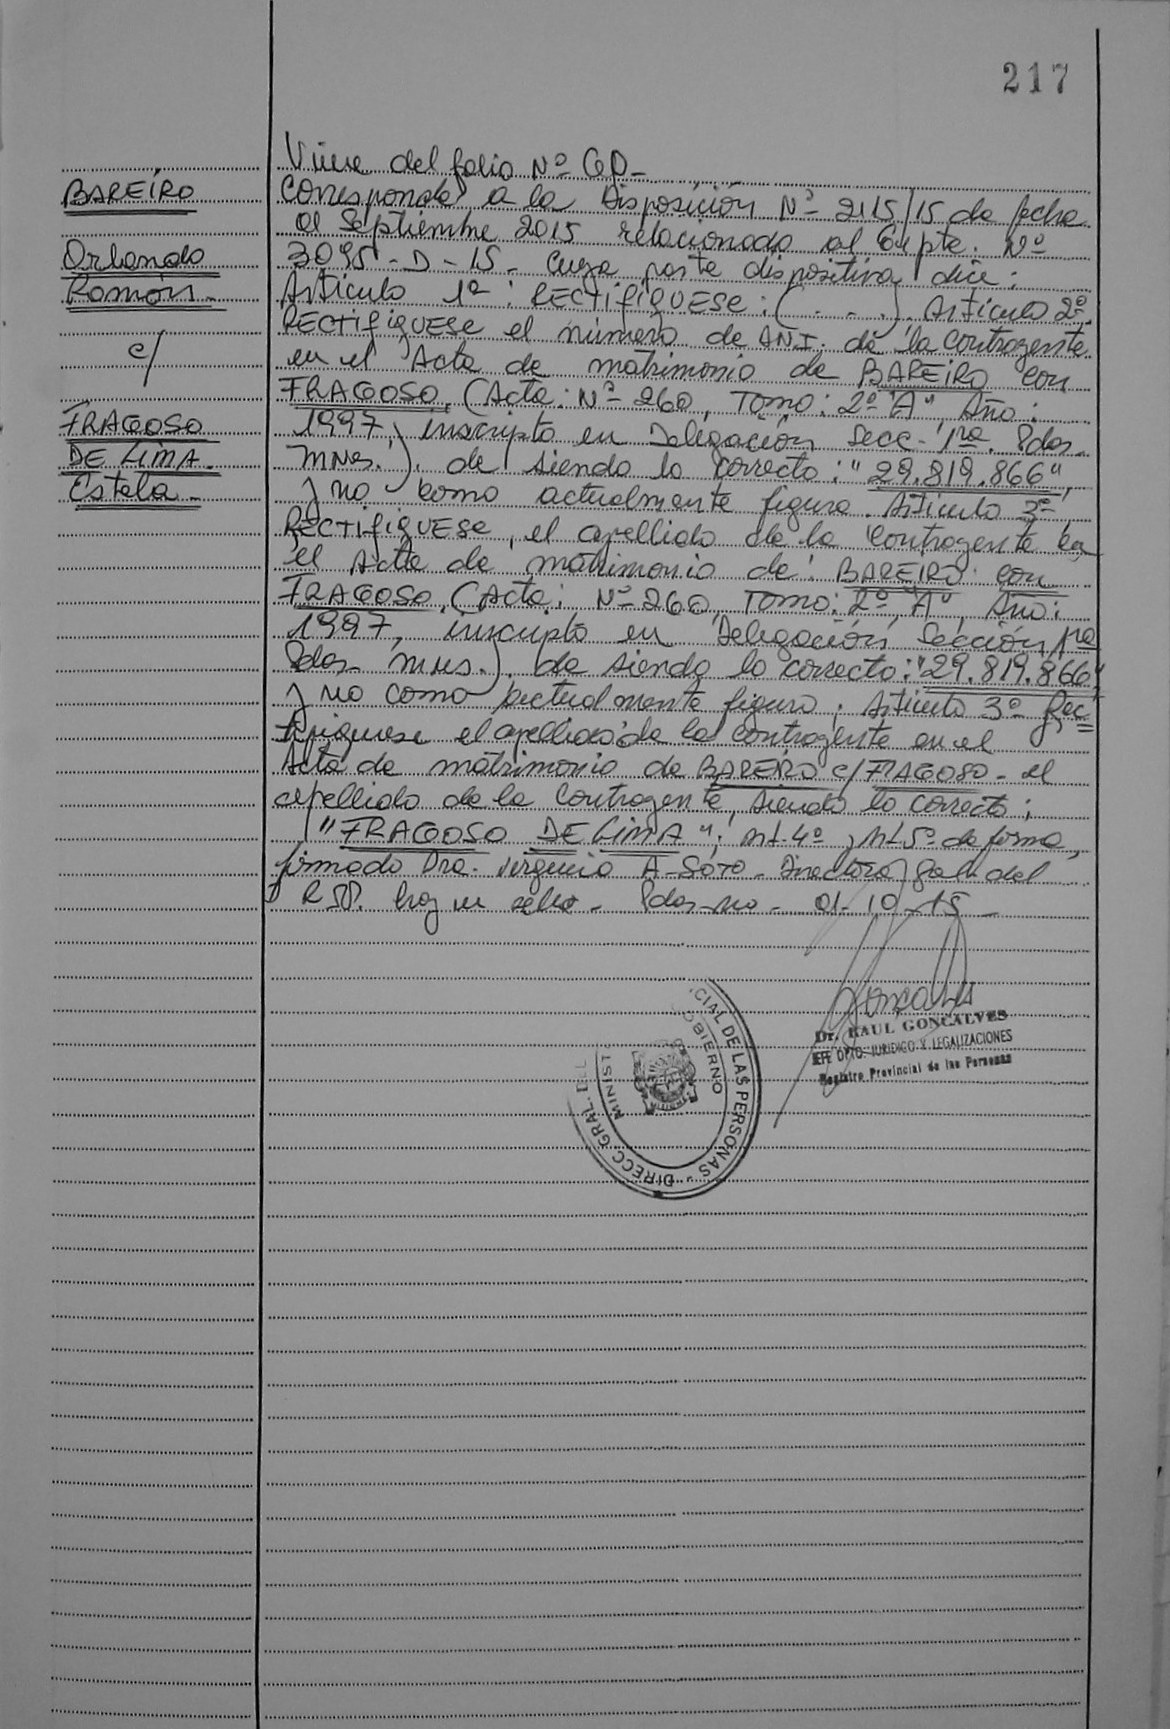 217
BAREIRO
Orlando
Ramón.-
c/
FRAGOSO
DE LIMA.
Estela.-
Viene del folio Nº 60-
Corresponde a la Disposición Nº 2115/15 de fecha
01 Septiembre 2015 relacionado al Expte. Nº
3095-D-15- cuya parte dispositiva dice:
Artículo 1º: RECTIFIQUESE: (. . .). Artículo 2º:
RECTIFIQUESE el número de DNI. de la contrayente
en el Acta de matrimonio de BAREIRO con
FRAGOSO, (Acta: Nº 260, Tomo: 2º "A" Año:
1997, inscripto en Delegación Secc. 1ra. Pdas.
Mnes.). de siendo lo correcto: "29.819.866",
y no como actualmente figura. Artículo 3º
RECTIFIQUESE, el apellido de la contrayente en
el Acta de matrimonio de: BAREIRO con
FRAGOSO, (Acta: Nº 260, Tomo: 2º, "A" Año:
1997, inscripto en Delegación, Sección, 1ra
Pdas- Mnes.), de siendo lo correcto: "29.819.866"
y no como actualmente figura; Artículo 3º Rec=
tifiquese el apellido de la contrayente en el
Acta de matrimonio de BAREIRO c/ FRAGOSO- el
apellido de la contrayente, siendo lo correcto:
"FRAGOSO DE LIMA"; Art. 4º, Art 5º de forma,
firmado Dra. Virginia A- Soto- Directora Gral. del
RPP. hoy Pdas- 01-10-15-
Dr. RAUL GONCALVES
JEFE DPTO. JURIDICO Y LEGALIZACIONES
Registro Provincial de las Personas
CIAL DE LAS PERSONAS - DIRECC. GRAL. DEL
MINIST
OBIERNO